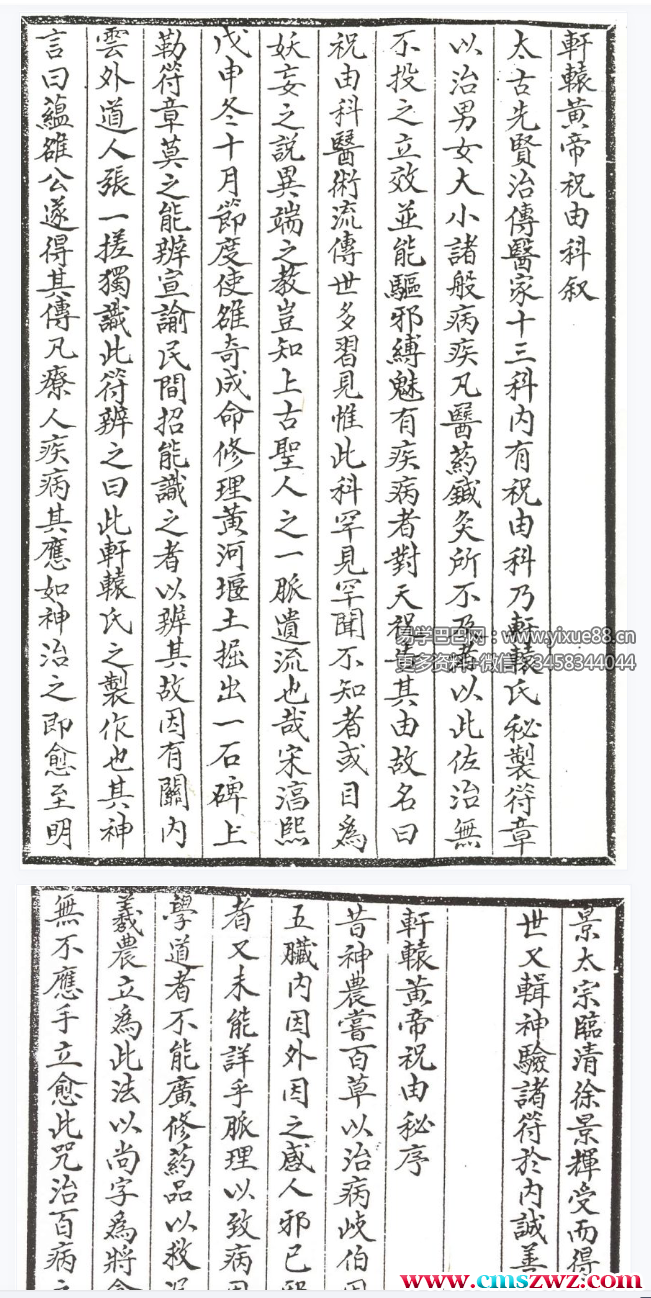 軒轅黃帝祝由科叙
太古先賢治傳醫家十三科內有祝由科乃軒轅氏秘製符章
以治男女大小諸般病疾凡醫葯鍼灸所不及者以此佐治無
不投之立效並能驅邪縛魅有疾病者對天祝其由故名曰
祝由科醫術流傳世多習見惟此科罕見罕聞不知者或目為
妖妄之說異端之教豈知上古聖人之一脈遺流也哉宋淳熙
戊申冬十月節度使雒奇成命修理黃河堰土掘出一石碑上
勒符章莫之能辨宣諭民間招能識之者以辨其故因有關內
雲外道人張一搓獨識此符辨之曰此軒轅氏之製作也其神
言曰蘊雒公遂得其傳凡療人疾病其應如神治之即愈至明
易学巴巴网：www.yixue88.cn
更多资料+微信：3458344044
景太宗臨清徐景輝受而得
世又輯神驗諸符於內誠善
軒轅黃帝祝由秘序
昔神農嘗百草以治病歧伯
五臟內因外因之感人邪已
者又未能詳乎脈理以致病
學道者不能廣修葯品以救
羲農立為此法以尚字為將
無不應手立愈此咒治百病
www.cmszwz.com